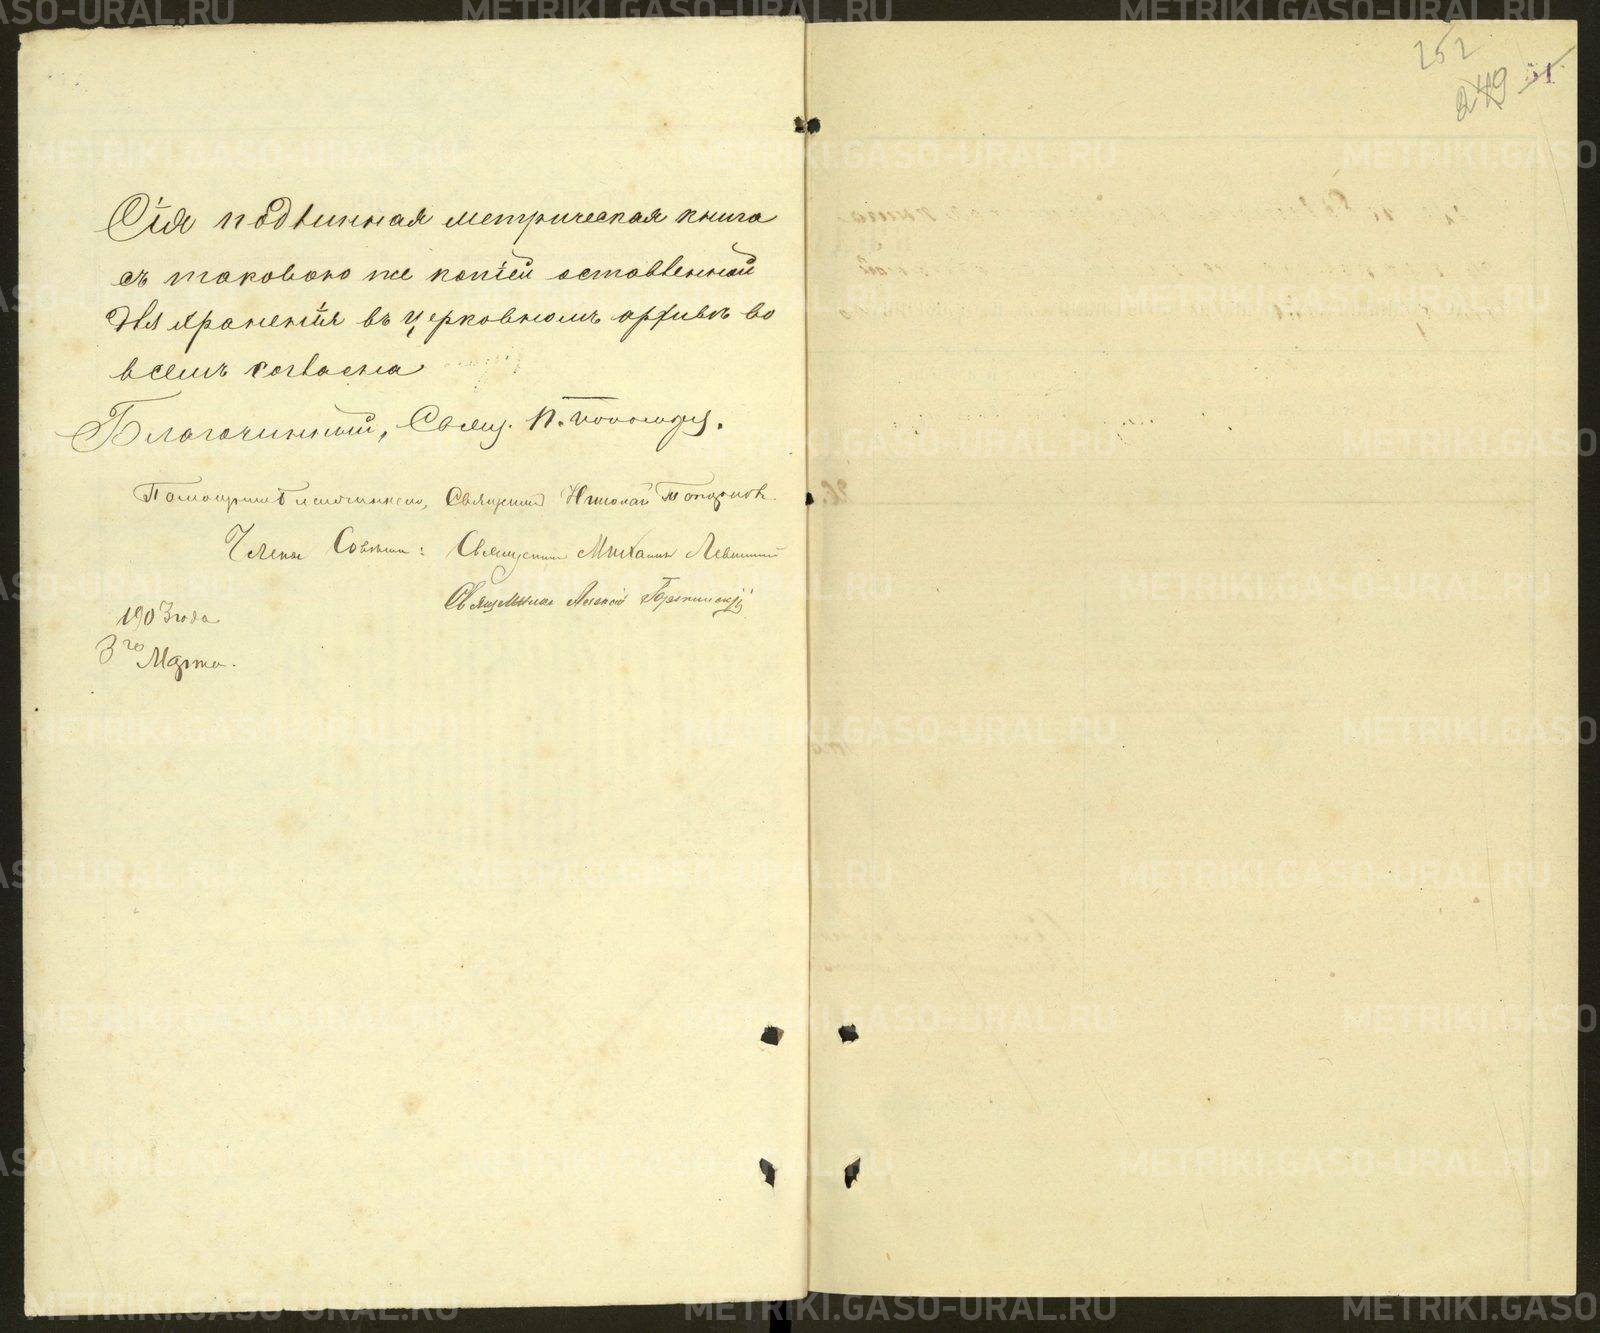 Сія подлинная метрическая книга
съ таковою же копіей оставленной
для храненія въ церковномъ архивѣ во
всемъ согласна
Благочинный, Свящ. П.
Помощникъ Благочиннаго, Священникъ Николай Топорковъ
Члены Совѣта: Священникъ Михаилъ Левицкій
Священникъ Алексій
1903 года
3го Марта.
252
249 51
METRIKI.GASO-URAL.RU